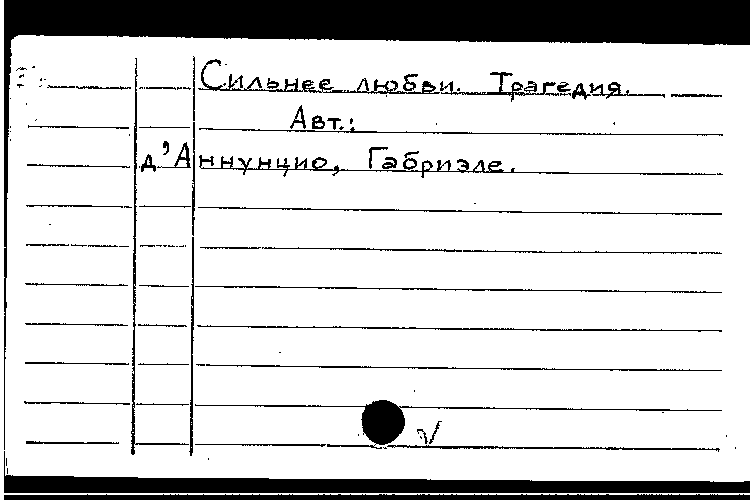 Сильнее любви. Трагедия.
Авт.:
д'Аннунцио, Габриэле.